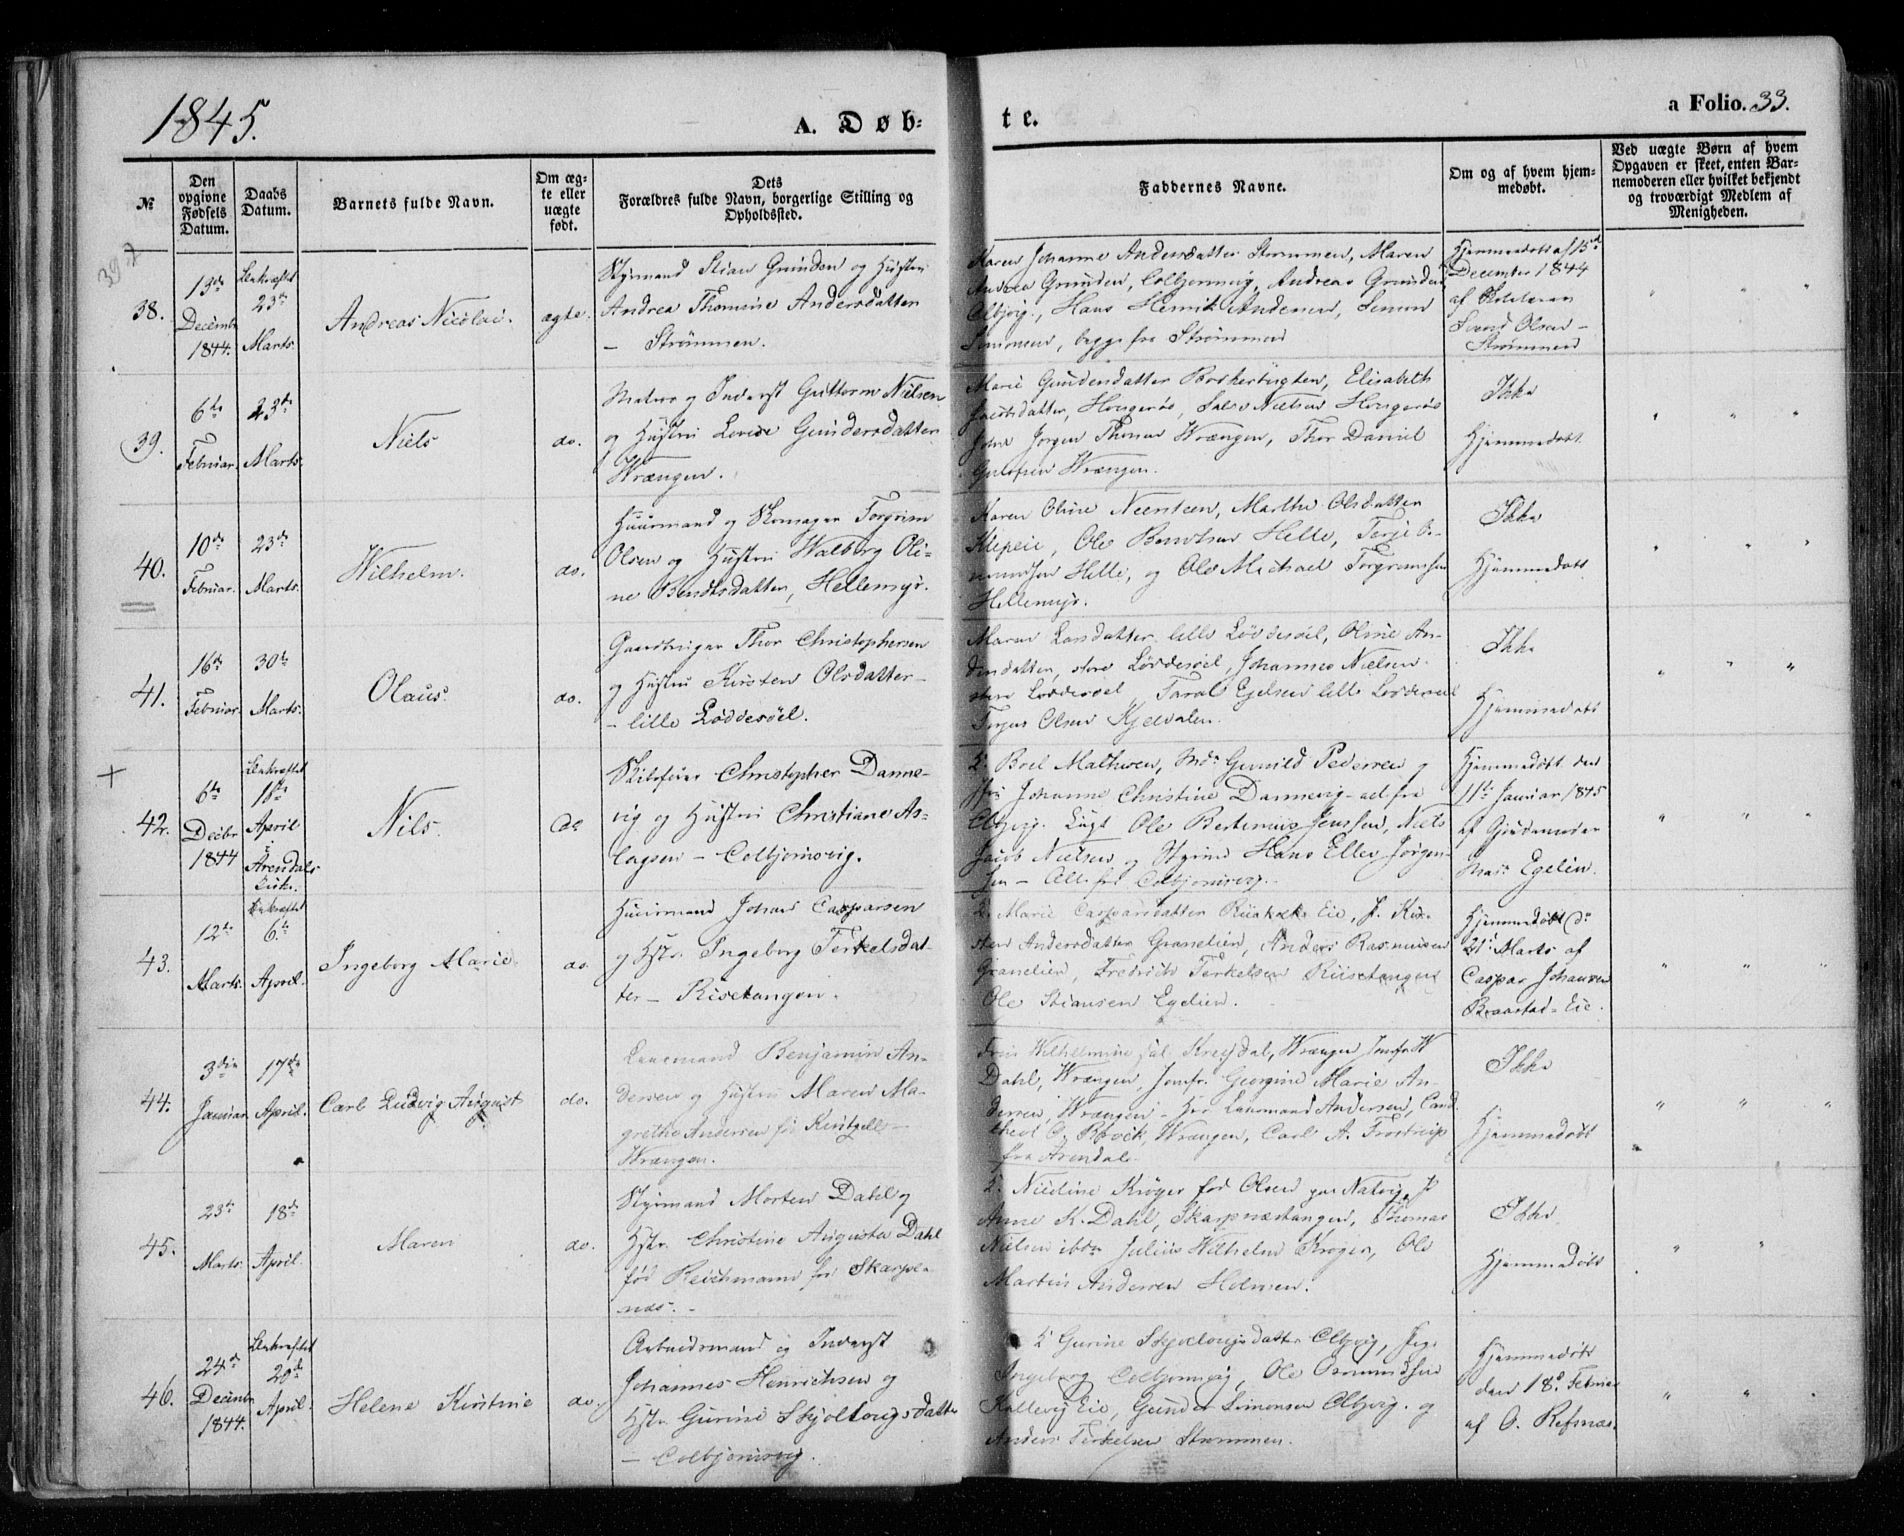 1845.
A. Døb-
te.
a Folio. 33.
№
Den opgivne Fødsels Datum.
Daabs Datum.
Barnets fulde Navn.
Om ægte eller uægte født.
Dets Forældres fulde Navn, borgerlige Stilling og Opholdssted.
Faddernes Navne.
Om og af hvem hjemmedøbt.
Ved uægte Børn af hvem Opgaven er skeet, enten Barnemoderen eller hvilket bekjendt og troværdigt Medlem af Menigheden.
38.
13de
Decembr
1844.
23de
Marts.
Andreas Nicolai.
ægte.
Styrmand Stian Gunden og Hustru
Andrea Thomine Andersdatter
— Strømmen.
Karen Johanne Andersdatter Strømmen, Maren
Andrea Grunden, Colbjørnsvig, Andreas Grunden
Olbjvig., Hans Henrik Andersen, Simon
Simonsen, begge fra Strømmen
Hjemmedøbt af 15de
December 1844
af
Svend Olsen —
Strømmen
39.
6te
Februar.
23de
Marts.
Niels
do.
Matros og Inderst Guttorm Nielsen
og Hustru Gundersdatter
Wrængen.
Marie Gundersdatter Elisabeth
Jacobsdatter, Hongerøe, Nielsen Hongerøe
Jørgen Wrængen, Thor Daniel
Wrængen.
Ikke
Hjemmedøbt
40.
10de
Februar.
23de
Marts.
Wilhelm.
do.
Huusmand og Skomager Torgrim
Olsen og Hustru Walborg Oli-
ne Bendtsdatter, Hellemyr.
Karen Oline Martha Olsdatter
Ole Bendtsen Helle, Terje O.-
mundsen Helle, og Ole Michael Torgrimsen
Hellemyr.
Ikke
Hjemmedøbt
41.
16de
Februar.
30te
Marts.
Olaus.
do.
Gaardbruger Thor Christophersen
og Hustru Kirsten Olsdatter —
— lille Løddesøel.
Maren Larsdatter lille Løddesøel, Oline An-
dersdatter, store Løddesøel, Johannes Nielsen
store Løddesøel, Taral Egelsen lille Løddesøel
Terjus Olsen Kjelvalen.
Ikke
Hjemmedøbt
42.
6te
Decbr
1844
18de
April
i
Arendals
Kirke.
Nils.
do
Skibsfører Christopher Danne-
vig og Hustru Christiane As-
lagsen — Colbjørnsvig.
K. Brel Mathisen, Md. Gunild Pedersen og
Jfr Johanne Christine Dannevig — all fra
Clbjvig. Ole Bertinius Jenssen, Niels
Jacob Nielsen og Styrmd Hans Ellef Jørgen-
sen — Alle fra Colbjørnsvig.
Hjemmedøbt den
11te Januar 1845
af Gjordemoder
Mad. Egelien.
43.
12te
Marts.
6te
April.
Ingeborg Marie.
do.
Huusmand Johan Casparsen
og Hstr. Ingeborg Terkelsdat-
ter — Risetangen.
K. Marie Casparsdatter Eie, P. Kir-
sten Andersdatter Granelien, Anders Rasmussen
Granelien, Fredrich Terkelsen Risetangen
Ole Stiansen Egelien.
Hjemmedøbt d:
21de Marts af
Caspar Johansen
Braastad-Eie.
44.
3die
Januar
17de
April.
Carl Ludvig August
do.
Lensmand Benjamin An-
dersen og Hustru Maren Ma-
grethe Andersen fød
Wrængen.
Wilhelmine Wrængen Jomfr W
Dahl, Wrængen, Jomfr. Georgine Marie An-
dersen, Wrængen — Hr Lensmand Andersen, Cand.
theol O. Wrængen, Carl A. Frostrup
fra Arendal.
Ikke
Hjemmedøbt
45.
23de
Marts.
18de
April.
Maren
do.
Styrmand Morten Dahl og
Hstr. Christine Augusta Dahl
fød Reichmann fra Skarpe-
næs. —
K. Nicoline Krøger fød Olsen paa Natvig, P
Anne K. Dahl, Skarpnæstangen, Thomas
Nielsen ibdn Julius Wilhelm Krøger, Ole
Martin Andersen Holmen.
Ikke
Hjemmedøbt
46.
24de
Decembr
1844.
20de
April.
Helene Kirstine
do.
Arbeidsmand og Inderst
Johannes Henrichsen og
Hstr. Gurine Skjoltorgsdatter
— Colbjørnsvig.
K Gurine Skjoltorgsdatter Clbjvig, Pige
Ingeborg Colbjørnsvig, Ole Osmundsen
Kallevig Eie, Gunder Simonsen Clbjvig. og
Anders Terkelsen Strømmen.
Hjemmedøbt
den 18de Februar
af O. Refsnæs.